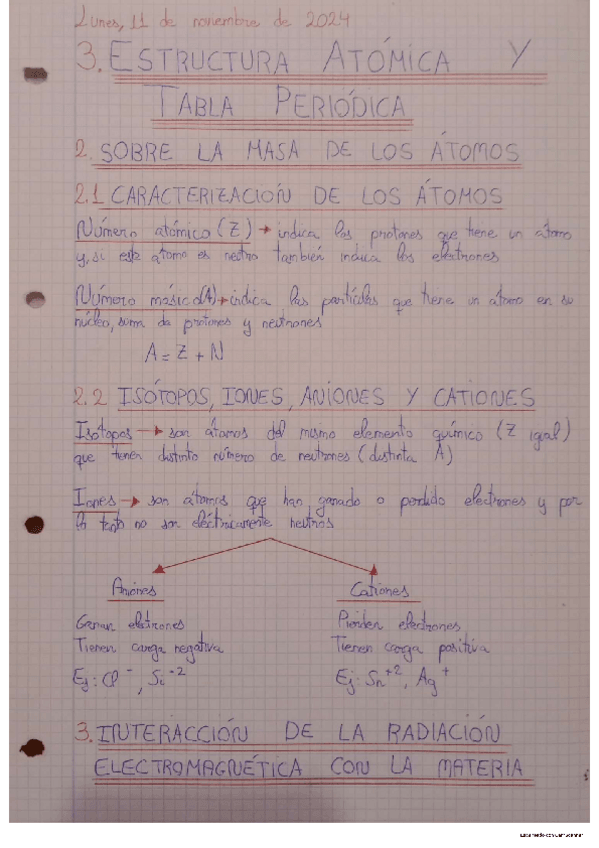 Lunes, 11 de noviembre de 2024
3. ESTRUCTURA ATÓMICA Y
TABLA PERIÓDICA
2. SOBRE LA MASA DE LOS ÁTOMOS
2.1 CARACTERIZACIÓN DE LOS ÁTOMOS
Número atómico (Z) → indica los protones que tiene un átomo
y, si este átomo es neutro también indica los electrones
Número másico (A) → indica las partículas que tiene un átomo en su
núcleo, suma de protones y neutrones
A = Z + N
2.2 ISÓTOPOS, IONES, ANIONES Y CATIONES
Isótopos → son átomos del mismo elemento químico (Z igual)
que tienen distinto número de neutrones (distinta A)
Iones → son átomos que han ganado o perdido electrones y por
lo tanto no son eléctricamente neutros
Aniones Cationes
Ganan electrones Pierden electrones
Tienen carga negativa Tienen carga positiva
Ej: Cl⁻, S⁻² Ej: Sn⁺², Ag⁺
3. INTERACCIÓN DE LA RADIACIÓN
ELECTROMAGNÉTICA CON LA MATERIA